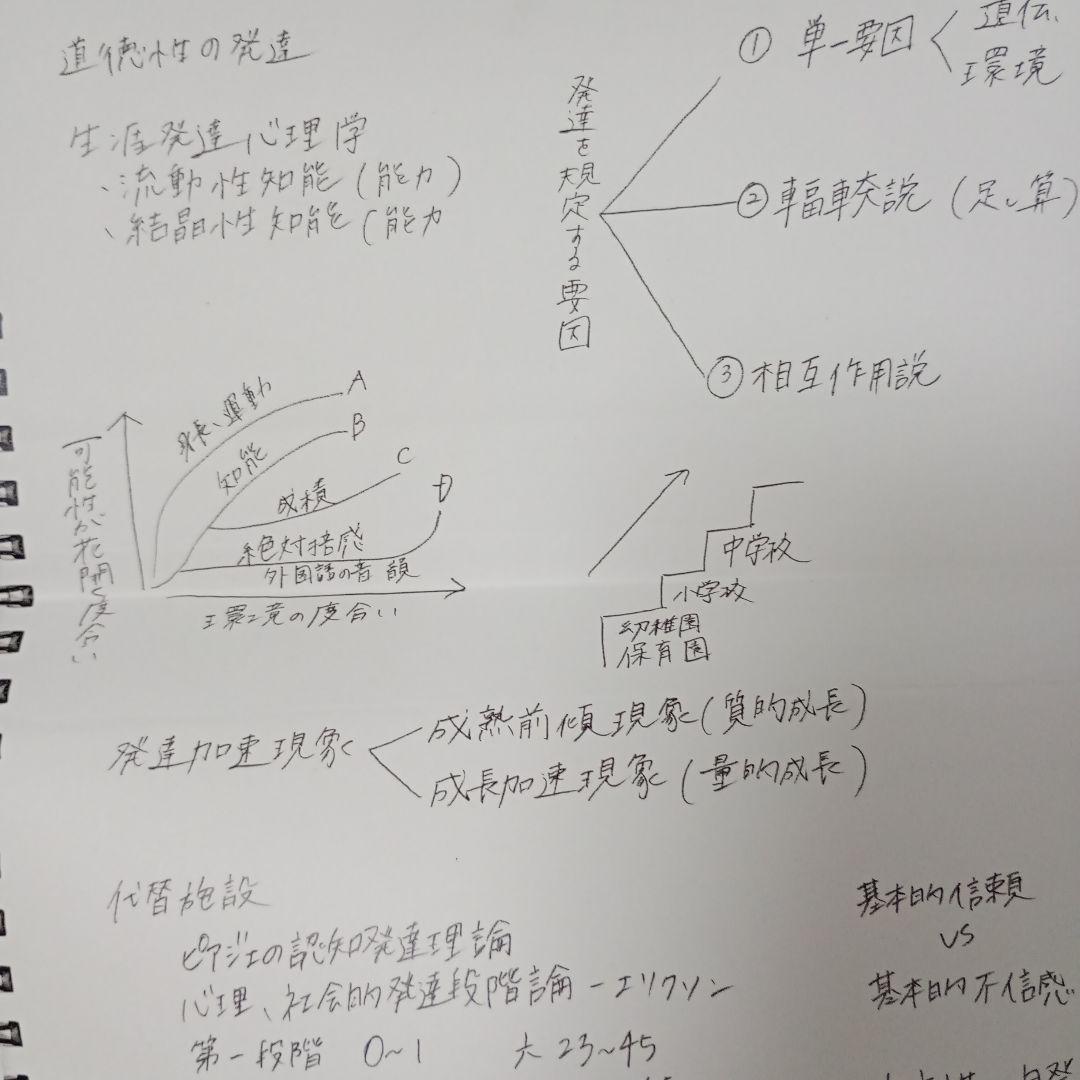 道徳性の発達
生涯発達心理学
、流動性知能(能力)
、結晶性知能(能力
発達を規定する要因
① 単一要因 < 遺伝、
環境
② 輻輳説 (足し算)
③ 相互作用説
可能性が花開く度合い
身長、運動 A
知能 B
成績 C
絶対音感 D
外国語の音韻
環境の度合い
中学校
小学校
幼稚園
保育園
発達加速現象
成熟前傾現象(質的成長)
成長加速現象(量的成長)
代替施設
ピアジェの認知発達理論
心理、社会的発達段階論-エリクソン
第一段階 0~1 六 23~45
基本的信頼
vs
基本的不信感